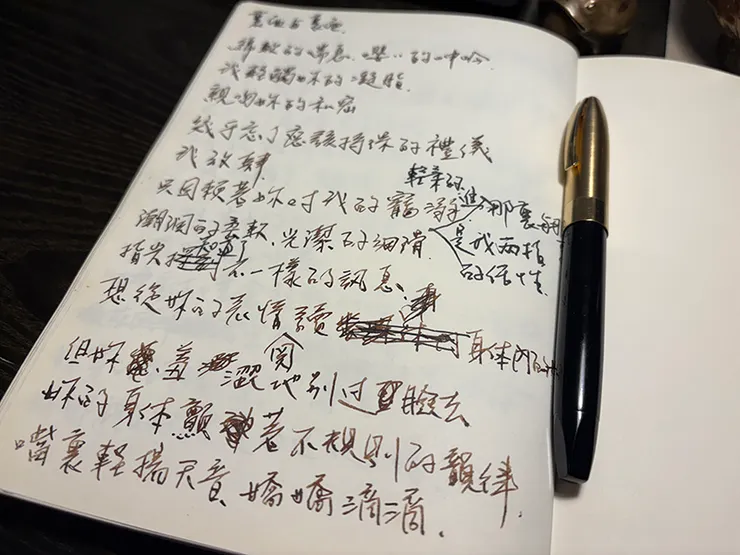 鬆軟的喘息、嚶..的呻吟
我輕觸妳的凝脂
親吻妳的私密
幾乎忘了應該持保的禮儀
我放肆
輕柔的
只因賴著妳對我的寵溺 進 那裏
潮潤的柔軟、光潔的細滑 是我兩指
指尖 不一樣的訊息 的任性
想從妳的表情讀 身體內的
但妳 羞澀地別过臉去
妳的身体顫著不規則的韻律.
嘴裏輕摀天音 嬌嬌滴滴.